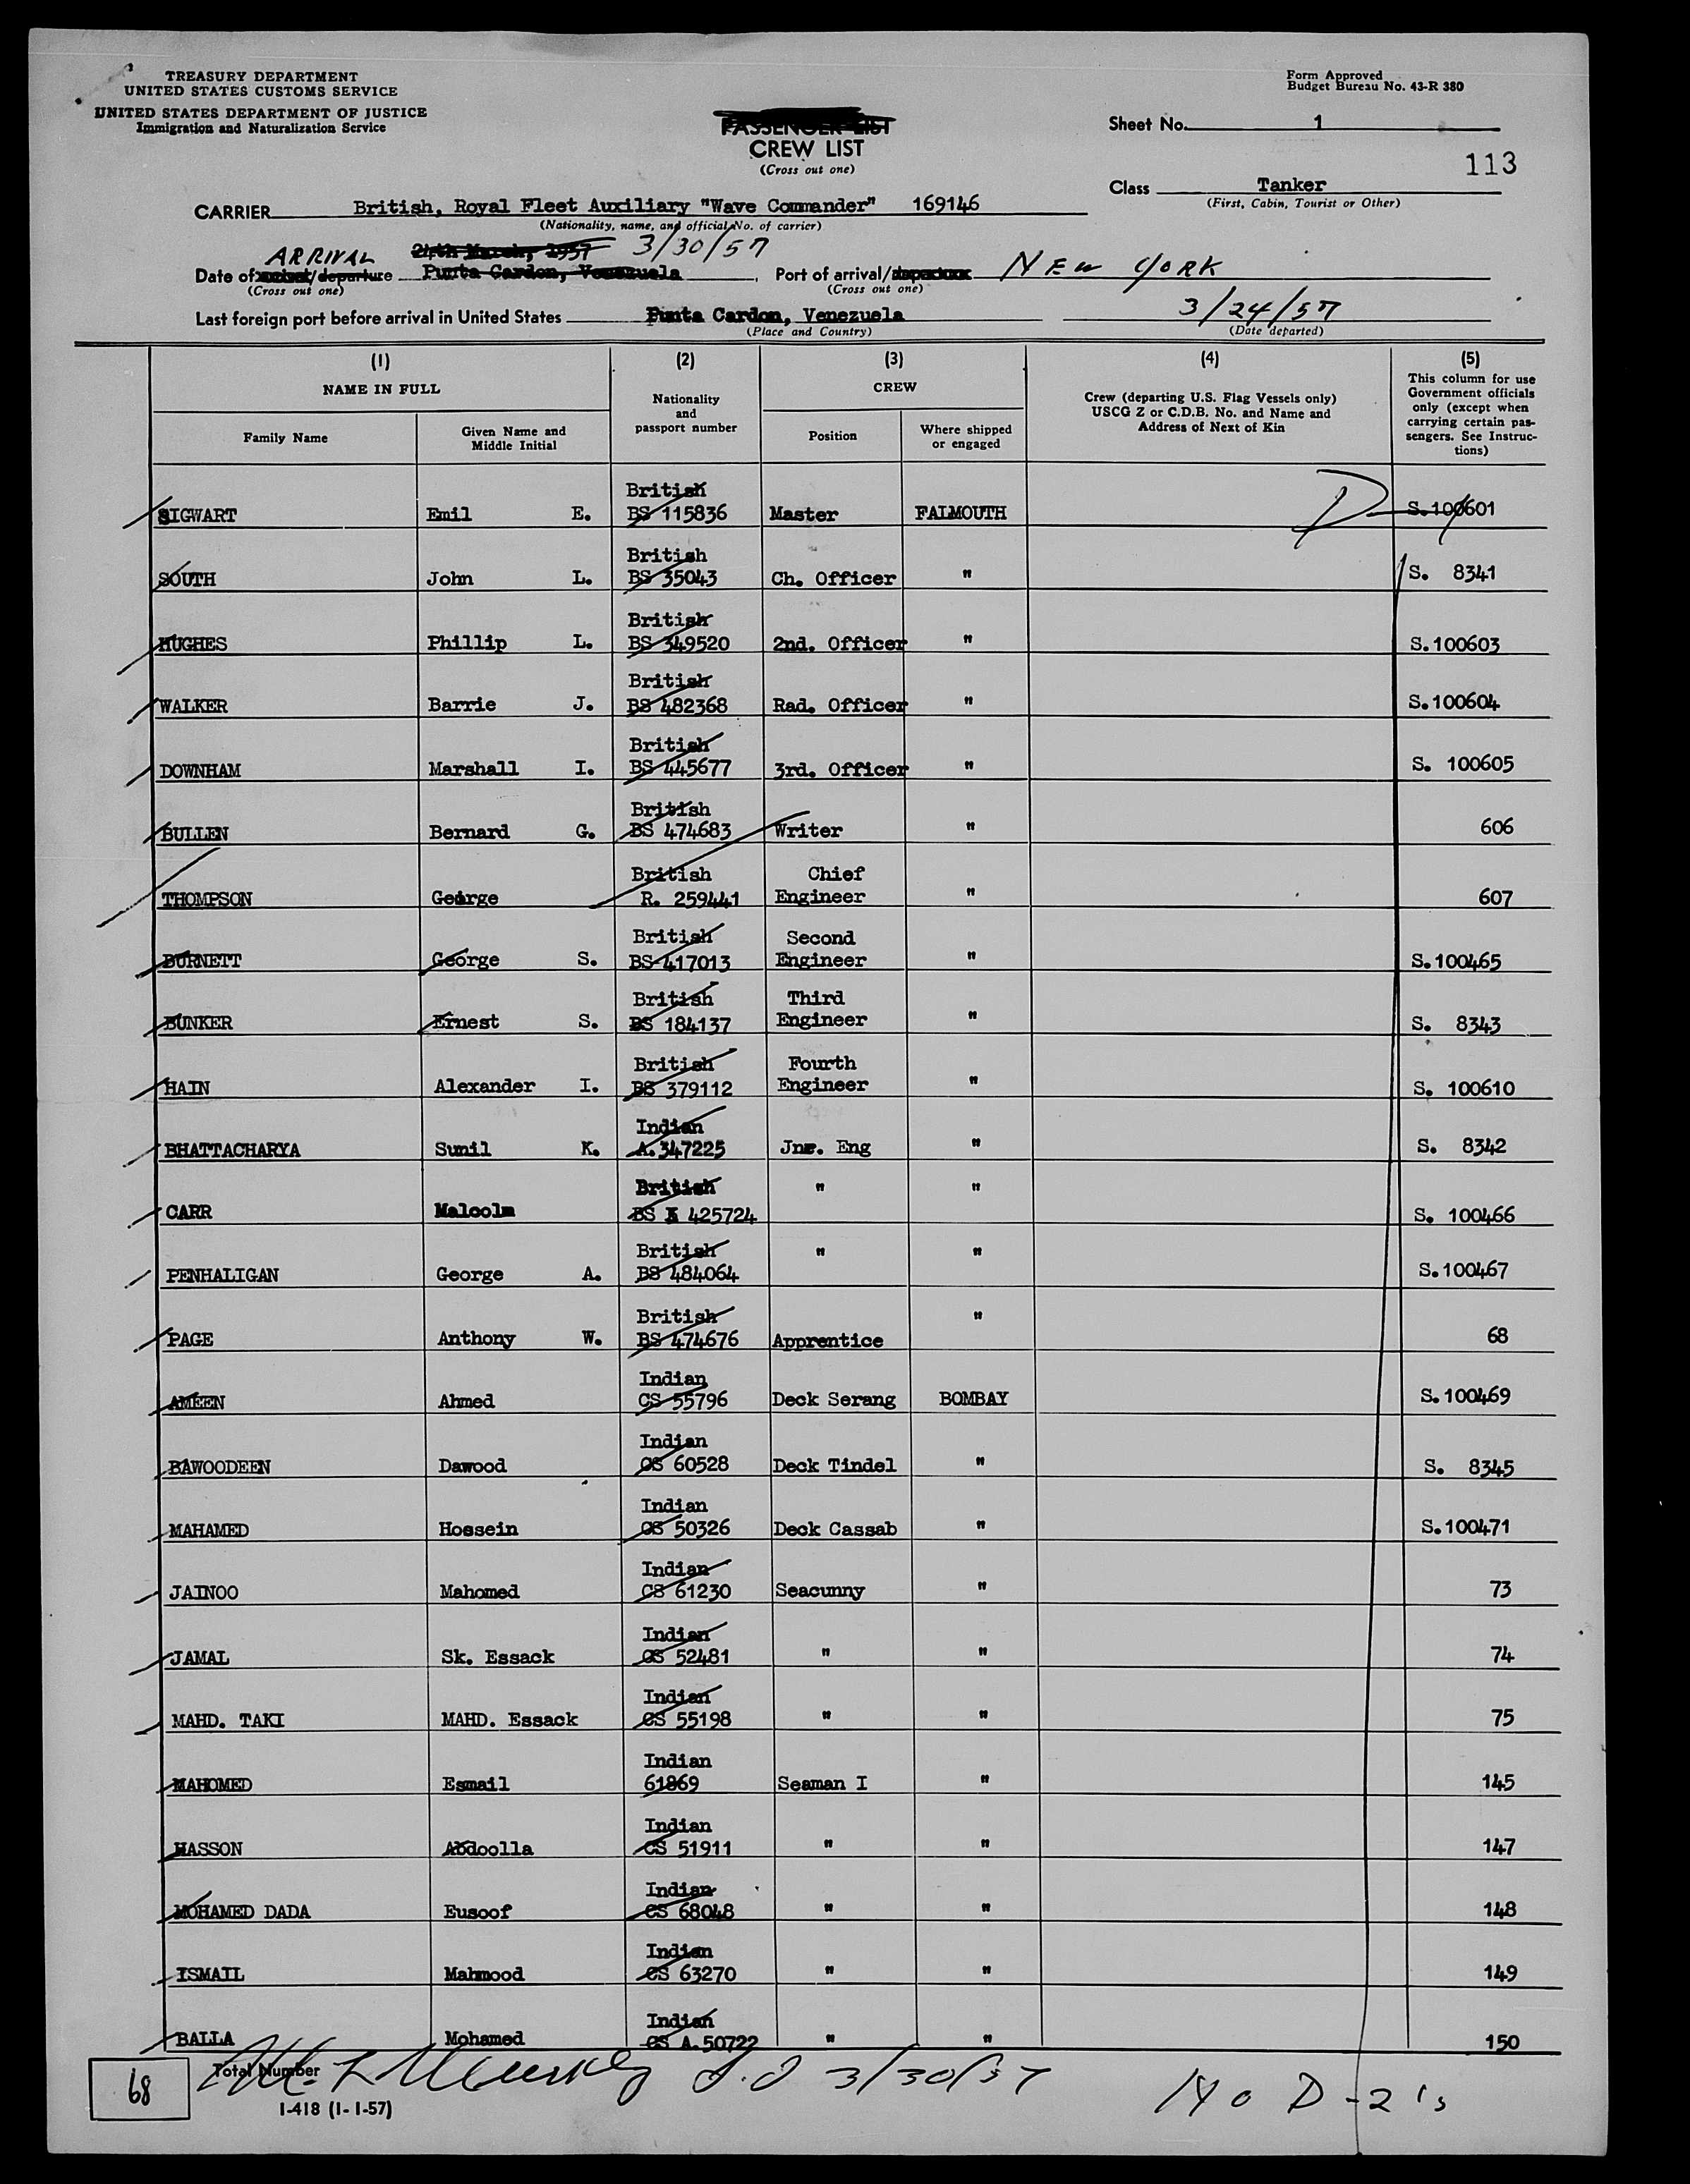 TREASURY DEPARTMENT
UNITED STATES CUSTOMS SERVICE
UNITED STATES DEPARTMENT OF JUSTICE
Immigration and Naturalization Service
Form Approved
Budget Bureau No. 43-R 380
PASSENGER LIST
CREW LIST
(Cross out one)
Sheet No. 1
113
Class Tanker
(First, Cabin, Tourist or Other)
CARRIER British, Royal Fleet Auxiliary "Wave Commander" 169146
(Nationality, name, and official No. of carrier)
ARRIVAL 24th March, 1957 3/30/57
Date of arrival/departure Punta Cardon, Venezuela, Port of arrival/departure NEW YORK
(Cross out one) (Cross out one)
Last foreign port before arrival in United States Punta Cardon, Venezuela 3/24/57
(Place and Country) (Date departed)
(1) (2) (3) (4) (5)
NAME IN FULL Nationality and passport number CREW Crew (departing U.S. Flag Vessels only) USCG Z or C.D.B. No. and Name and Address of Next of Kin This column for use Government officials only (except when carrying certain passengers. See Instructions)
Family Name Given Name and Middle Initial Position Where shipped or engaged
British
SIGWART Emil E. BS 115836 Master FALMOUTH D S.100601
British
SOUTH John L. BS 35043 Ch. Officer " S. 8341
British
HUGHES Phillip L. BS 349520 2nd. Officer " S.100603
British
WALKER Barrie J. BS 482368 Rad. Officer " S.100604
British
DOWNHAM Marshall I. BS 445677 3rd. Officer " S. 100605
British
BULLEN Bernard G. BS 474683 Writer " 606
British Chief
THOMPSON George R. 259441 Engineer " 607
British Second
BURNETT George S. BS 417013 Engineer " S.100465
British Third
BUNKER Ernest S. BS 184137 Engineer " S. 8343
British Fourth
HAIN Alexander I. BS 379112 Engineer " S. 100610
Indian
BHATTACHARYA Sunil K. A.347225 Jnr. Eng " S. 8342
British
CARR Malcolm BS 425724 " " S. 100466
British
PENHALIGAN George A. BS 484064 " " S.100467
British
PAGE Anthony W. BS 474676 Apprentice " 68
Indian
AMEEN Ahmed CS 55796 Deck Serang BOMBAY S.100469
Indian
BAWOODEEN Dawood CS 60528 Deck Tindel " S. 8345
Indian
MAHAMED Hossein CS 50326 Deck Cassab " S.100471
Indian
JAINOO Mahomed CS 61230 Seacunny " 73
Indian
JAMAL Sk. Essack CS 52481 " " 74
Indian
MAHD. TAKI MAHD. Essack CS 55198 " " 75
Indian
MAHOMED Esmail 61869 Seaman I " 145
Indian
HASSON Abdoolla CS 51911 " " 147
Indian
MOHAMED DADA Eusoof CS 68048 " " 148
Indian
ISMAIL Mahmood CS 63270 " " 149
Indian
BALLA Mohamed CS A.50722 " " 150
68 Total Number 3/30/57 140 D-2's
I-418 (1-1-57)